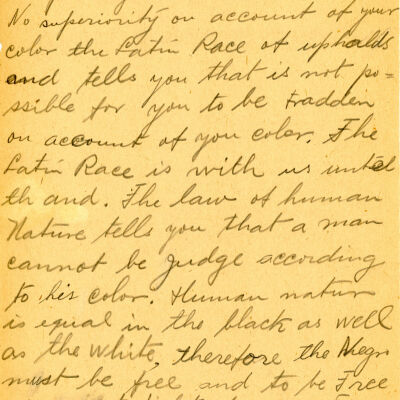 No superiority on account of your
color the Latin Race of uphalds
and tells you that is not po=
ssible for you to be tradden
on account of you coler. The
Latin Race is with us until
th and. The law of human
Nature tells you that a man
cannot be judge according
to his color. Human natur
is equal in the black as well
as the white, therefore the Negro
must be free and to be Free